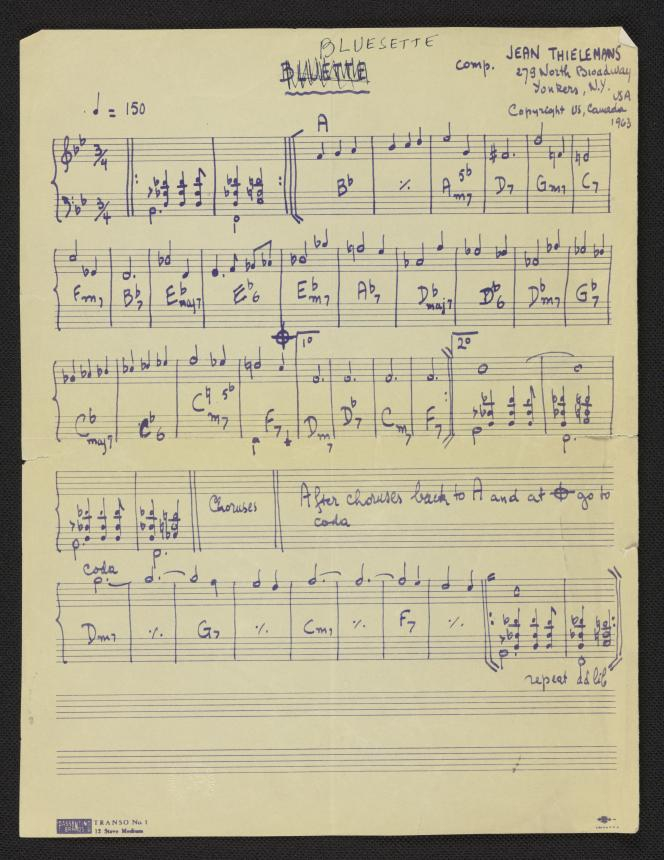 BLUESETTE
BLUETTE
comp. JEAN THIELEMANS
279 North Broadway
Yonkers, N.Y.
USA
Copyright US, Canada
1963
♩ = 150
A
3/4
3/4
B♭ ٪ A m7 5b D7 Gm7 C7
Fm7 B♭7 E♭maj7 E♭6 E♭m7 A♭7 D♭maj7 D♭6 D♭m7 G♭7
1º 2º
C♭maj7 C♭6 C♮m7 5b F7+ Dm7 D♭7 Cm7 F7
Choruses After choruses back to A and at 𝄌 go to
coda
coda
Dm7 ٪ G7 ٪ Cm7 ٪ F7 ٪
repeat ad lib
PASSANTINO BRANDS TRANSO No. 1
12 Stave Medium